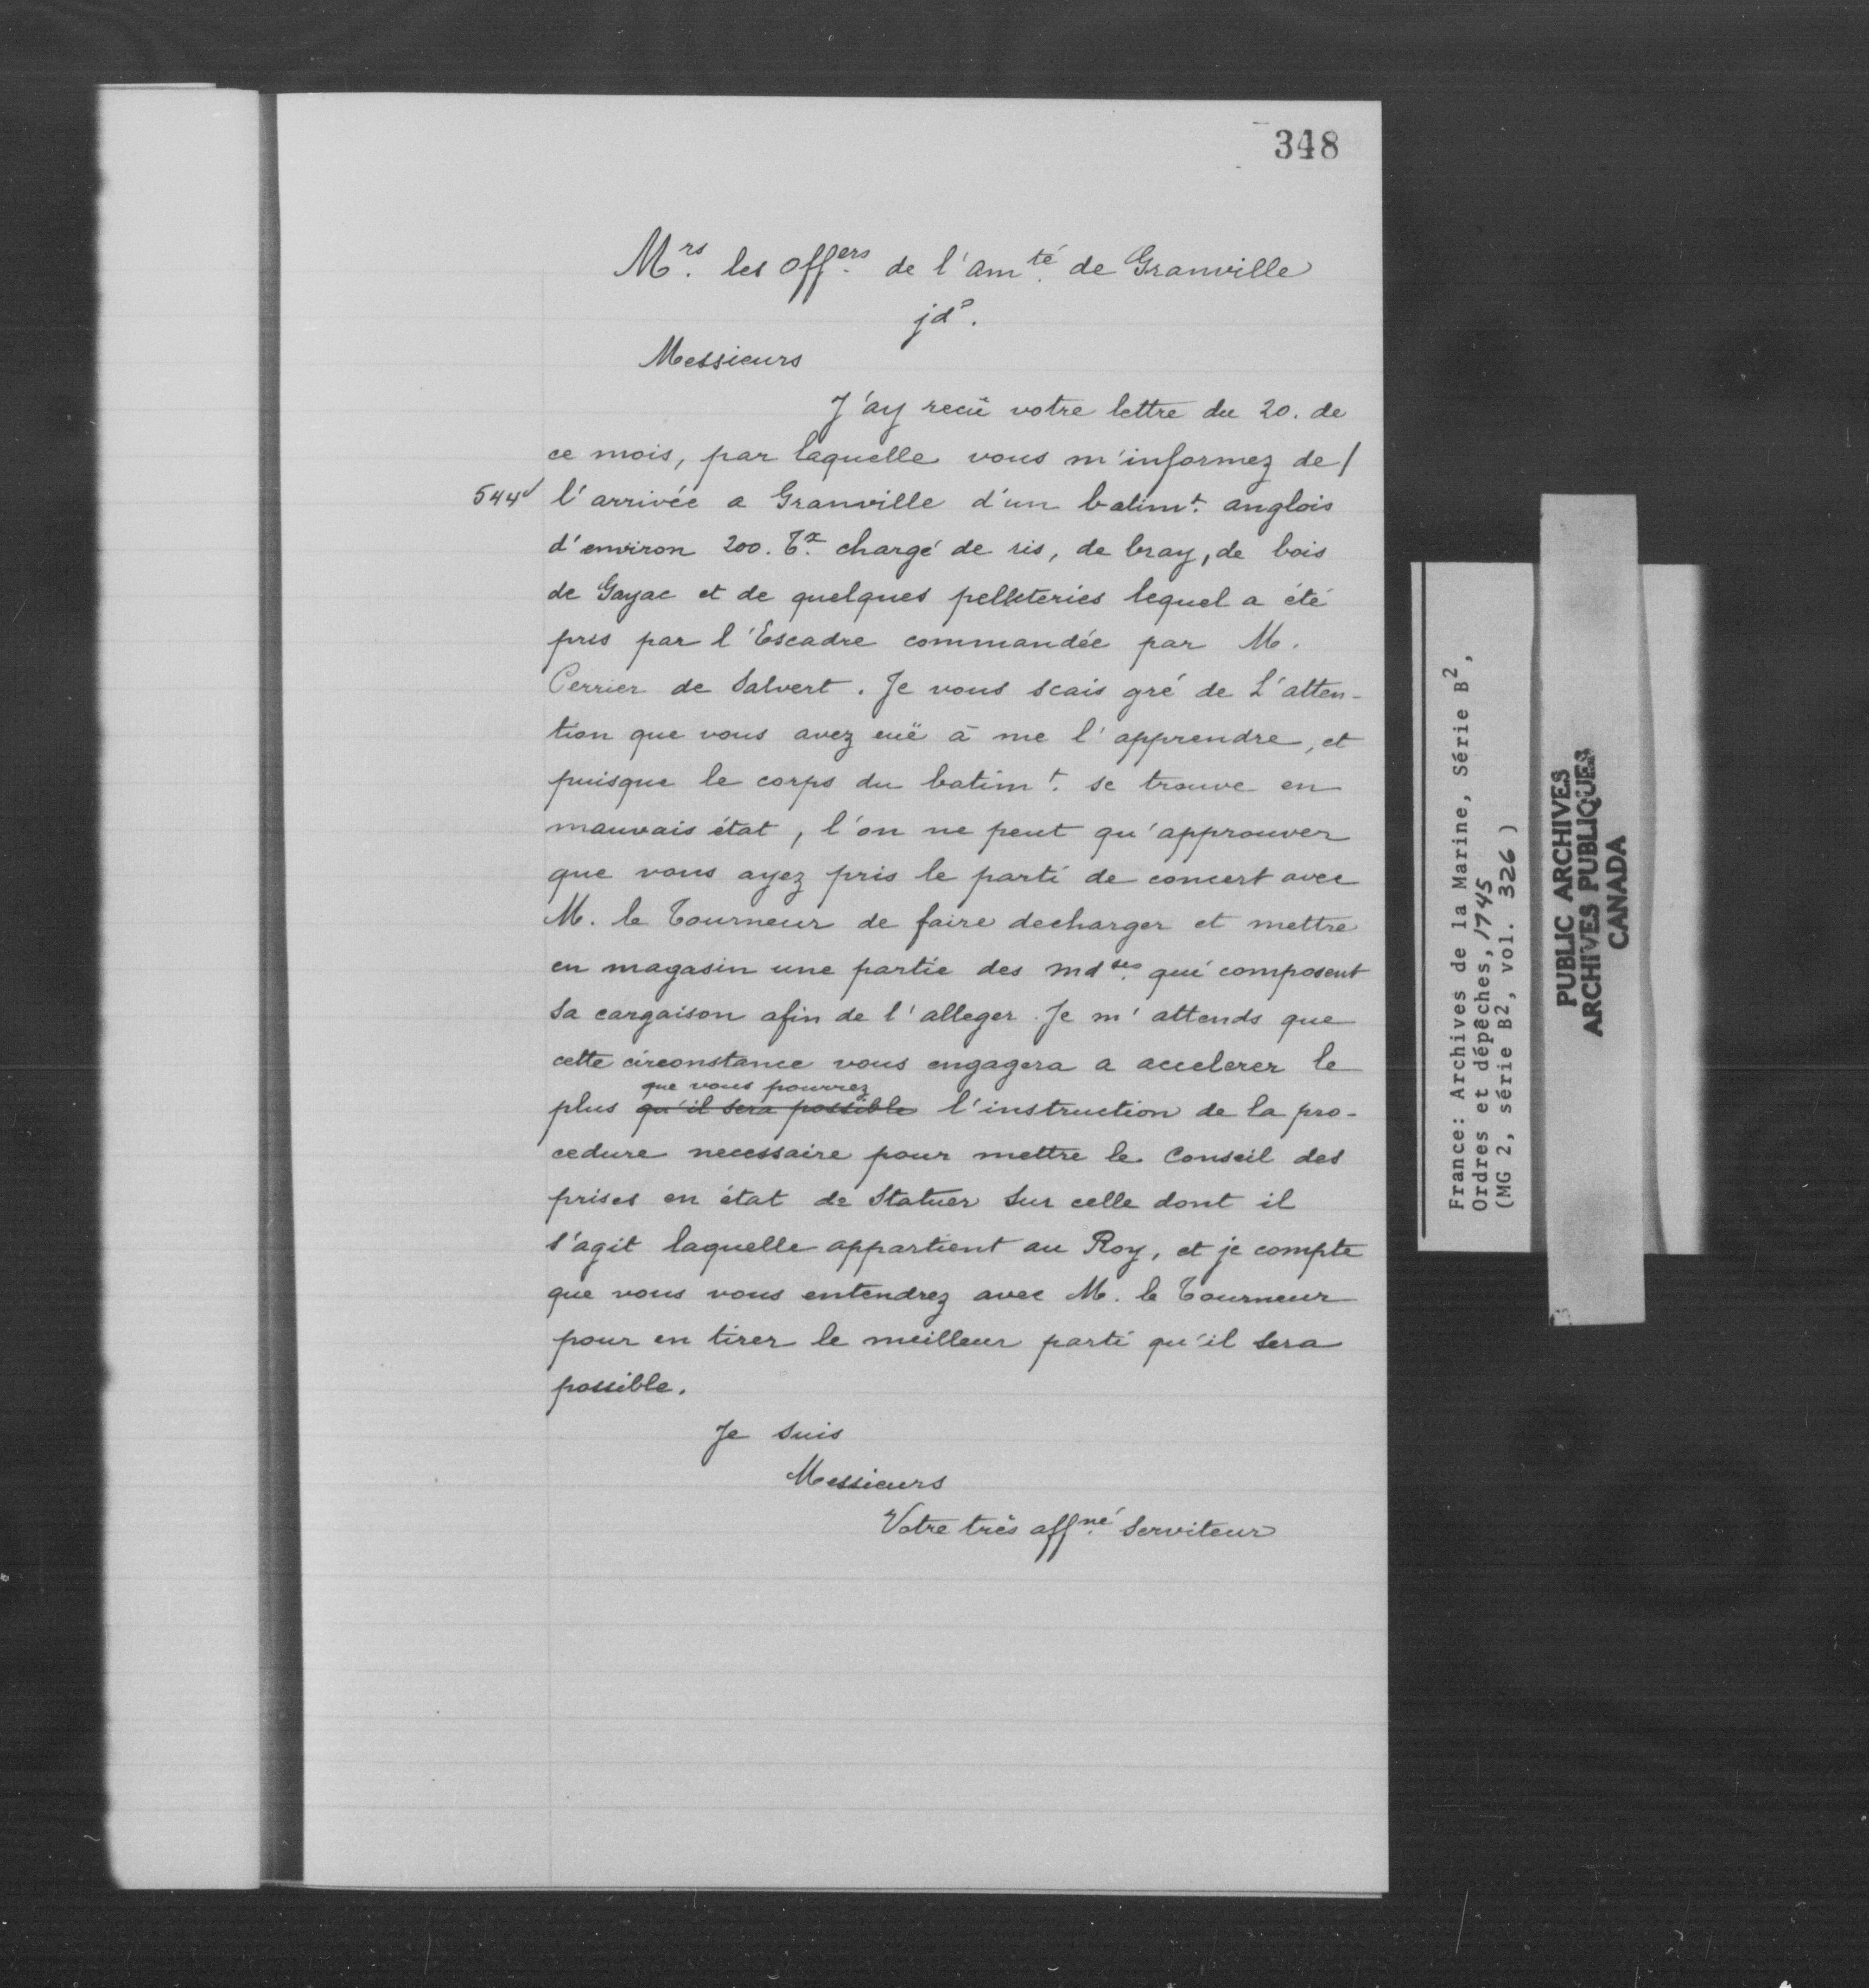 348
M.rs les off.ers de l'am.té de Granville
jd.o
Messieurs
J'ay recû votre lettre du 20. de
ce mois, par laquelle vous m'informez de /
544v l'arrivée a Granville d'un batim.t anglois
d'environ 200. T.x chargé de ris, de bray, de bois
de Gayac et de quelques pelleteries lequel a été
pris par l'Escadre commandée par M.
Perrier de Salvert. Je vous scais gré de L'atten-
tion que vous avez euë à me l'apprendre, et
puisque le corps du batim.t se trouve en
mauvais état, l'on ne peut qu'approuver
que vous ayez pris le parti de concert avec
M. le Tourneur de faire decharger et mettre
en magasin une partie des md.ses qui composent
sa cargaison afin de l'alleger. Je m'attends que
cette circonstance vous engagera a accelerer le
que vous pourrez
plus qu'il sera possible l'instruction de la pro-
cedure necessaire pour mettre le Conseil des
prises en état de Statuer sur celle dont il
s'agit laquelle appartient au Roy, et je compte
que vous vous entendrez avec M. le Tourneur
pour en tirer le meilleur parti qu'il sera
possible.
Je suis
Messieurs
Votre très aff.né Serviteur
France: Archives de la Marine, Série B2,
Ordres et dépêches, 1745
(MG 2, série B2, vol. 326)
PUBLIC ARCHIVES
ARCHIVES PUBLIQUES
CANADA